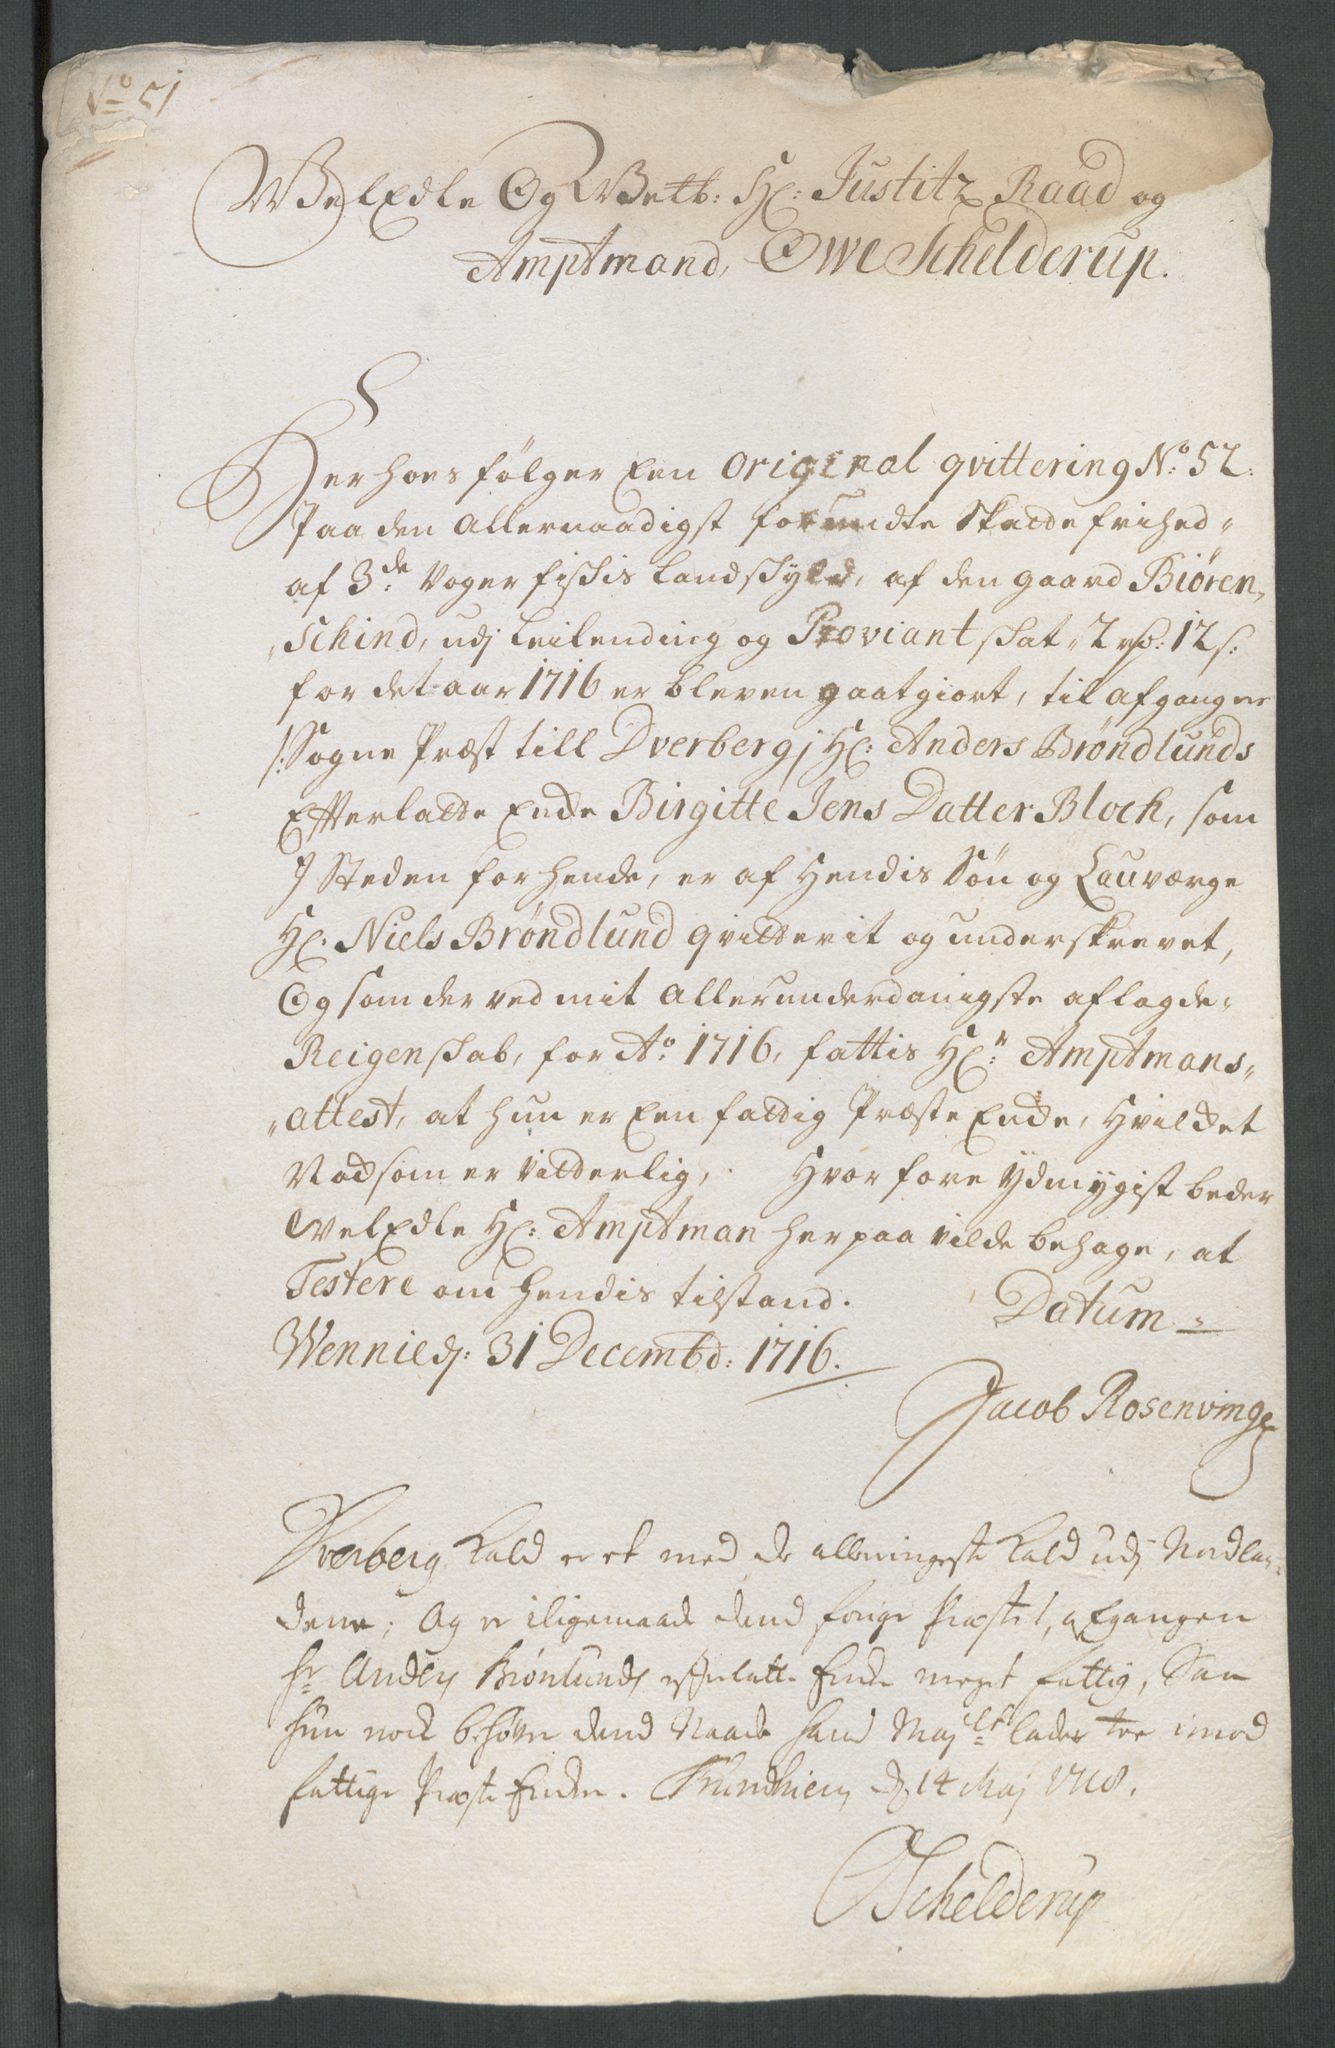 No 51
WelEdle Og Welb: Hr: Justitz Raad og
Amptmand, Owe Schelderup.
Her hoes følger Een Original qvittering No: 52:
Paa den Allernaadigst forundte Skatte frihed
af 3de Voger fiskis Landskyld, af den gaard Biøren,,
,,schind, udj Leilending og Proviant skat,, 2 rd: 12 s:
for det aar 1716 er bleven gaatgiort, til afgangne
/: Sogne Præst till Dverberg / Hr: Anders Brøndlunds
Efterlatte Encke Birgitte Jens Datter Bloch, som
J Steden for hende, er af Hendis Søn og Lauværge
Hr: Niels Brøndlund qvitterit og underskrevet,
Og som der ved mit Allerunderdanigste aflagde
Reigenskab, for Ao 1716, fattis Hr: Amptmans,,
,,attest, at hun er Een fattig Præste Encke, Hvilket
Nocksom er vitterlig, Hvorfore Ydmygist beder
WelEdle Hr: Amptman herpaa vilde behage, at
Testere om hendis tilstand. Datum
Wennie dj: 31 Decembr: 1716.
Jacob Rosenvinge
Dverberg Kald er et med de allerringeste Kald udj Nordlan-
dene; Og er iligemaade dend forige Præstes, afgangen
Hr Anders Brønlunds efterlatte Encke meget fattig, Saa
hun nock behøver dend Naade hans Majts lader tee imod
fattige Præste Encker. Trundhiem dj 14 Maj 1718.
OSchelderup